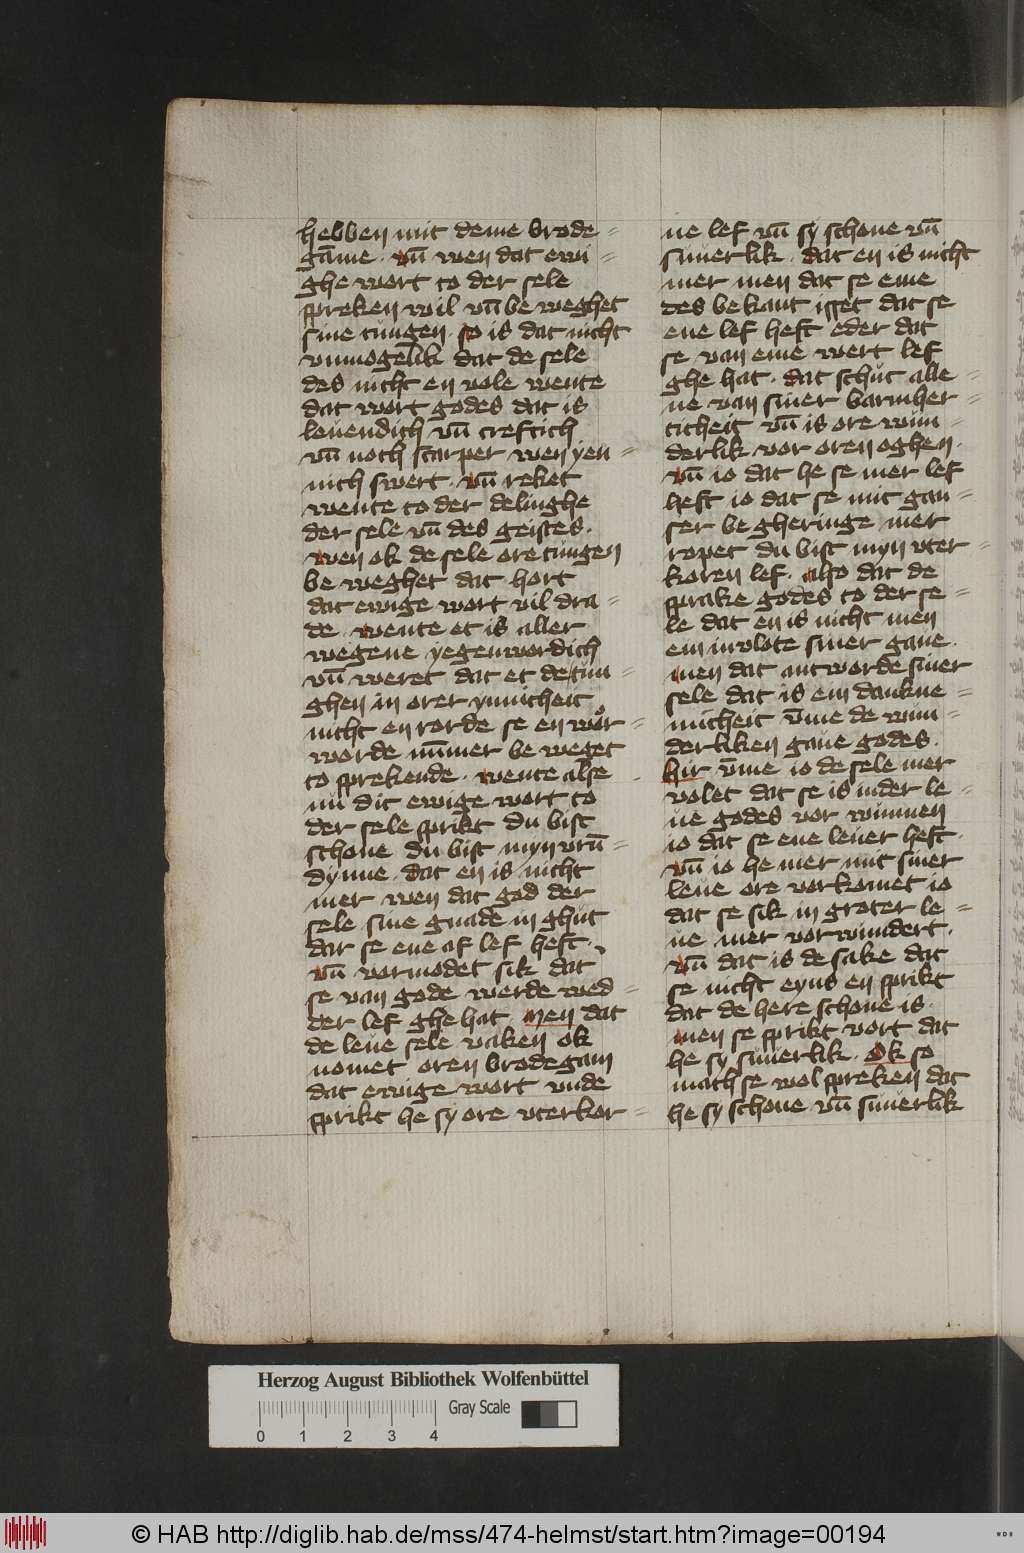 hebben mit deme brode=
gāme · vn̄ wen dat ewi=
ghe wort to der sele
spreken wil vn̄ be weghet
sine tungen · so is dat nicht
vnmogelik dat de sele
des nicht en vole wente
dat wort godes dat is
leuendich vn̄ creftich
vn̄ noch scarper wen yen=
nich swert · vn̄ reket
wente to der delinghe
der sele vn̄ des geistes ·
wen ok de sele ore tungen
be weghet dat hort
dat ewige wort vil dra=
de · wente et is aller
wegene yegenwordich
vn̄ weret dat et de tun=
ghen in orer ynnicheit
nicht en rorde se en wor=
worde nūmer be weget
to sprekende · wente alse
nu dit ewige wort to
der sele sprikt du bist
schone du bist myn vrū=
dynne · dat en is nicht
mer wen dat god der
sele sine gnade in ghut
dar se ene af lef heft ·
vn̄ vormodet sik dat
se van gode werde wed=
der lef ghe hat · Men dat
de leue sele vaken ok
nomet oren brodegam
dat ewige wort vnde
sprikt he sy ore vterkor=
ne lef vn̄ sy schone vn̄
suuerlik · dat en is nicht
mer men dat se eme
des bekant isset dat se
ene lef heft eder dat
se van eme wert lef
ghe hat · dat schut alle=
ne van siner barmher=
ticheit vn̄ is ore wun=
derlik vor oren oghen ·
vn̄ io dat he se mer lef
heft io dat se mit gan=
ser be gheringe mer
ropet du bist myn vter=
koren lef · also dat de
sprake godes to der se=
le dat en is nicht men
ein invlote siner gaue ·
men dat antworde siner
sele dat is ein dankne=
micheit v̄me de wun=
derliken gaue godes ·
Hir v̄me io de sele mer
volet dat se is in der le=
ue godes vor wunnen
io dat se ene leuer heft ·
vn̄ io he mer mit siner
leue ore vorkomet io
dat se sik in groter le=
ue mer vorwundert ·
vn̄ dat is de sake dat
se nicht eyns en sprikt
dat de here schone is ·
men se sprikt vort dat
he sy suuerlik · Ok so
mach se wol spreken dat
he sy schone vn̄ suuerlik
Herzog August Bibliothek Wolfenbüttel
Gray Scale
0 1 2 3 4
© HAB http://diglib.hab.de/mss/474-helmst/start.htm?image=00194
WDB